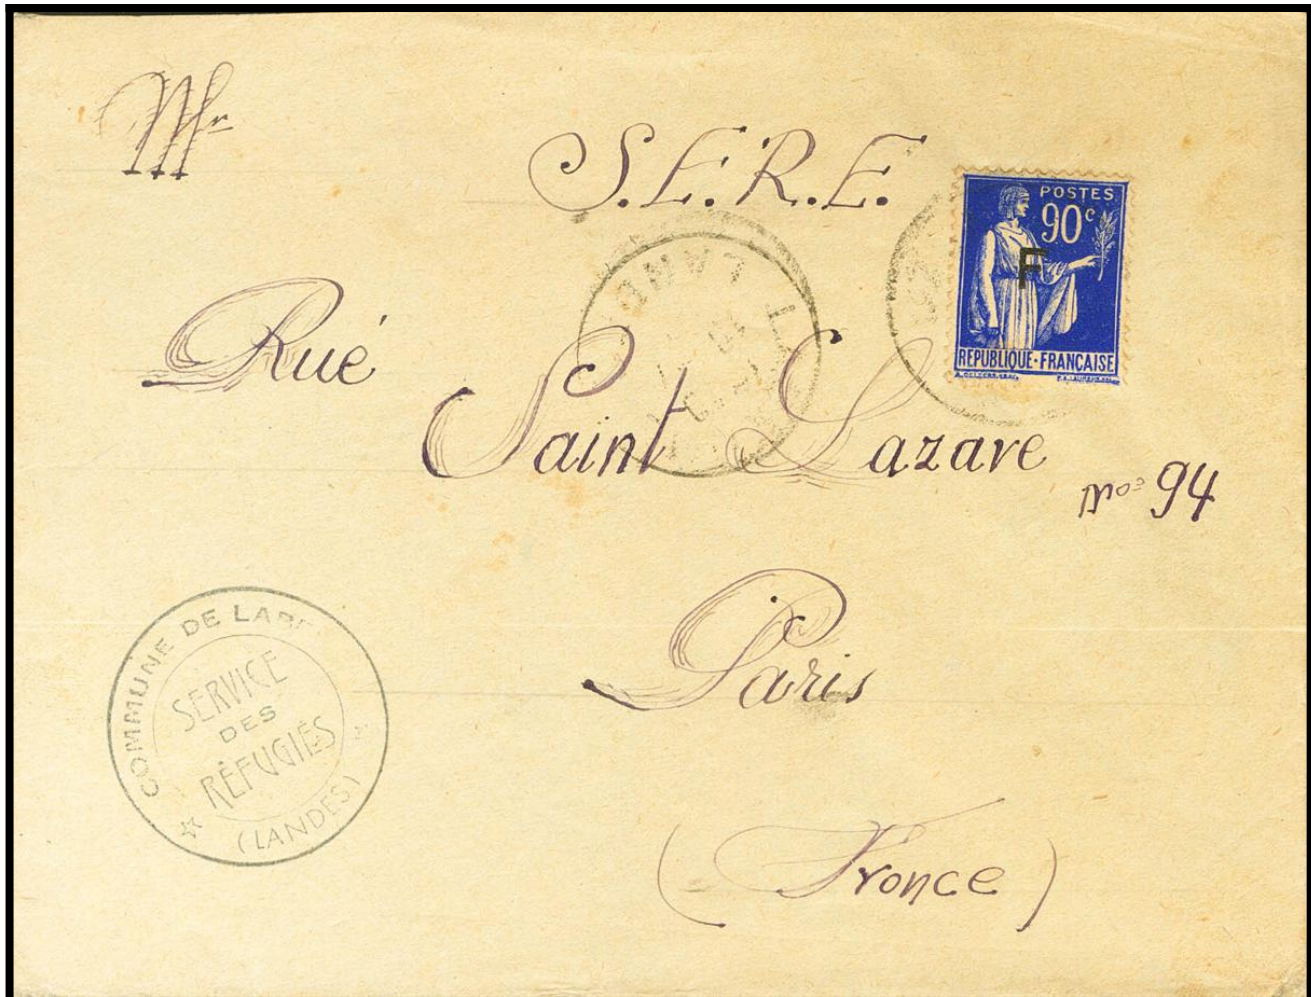 Mr
S.E.R.E.
POSTES
90c
F
REPUBLIQUE·FRANCAISE
LAND
Rué
Saint Lazare
nos 94
Paris
(Fronce)
COMMUNE DE
SERVICE
DES
RÉFUGIÉS
(LANDES)